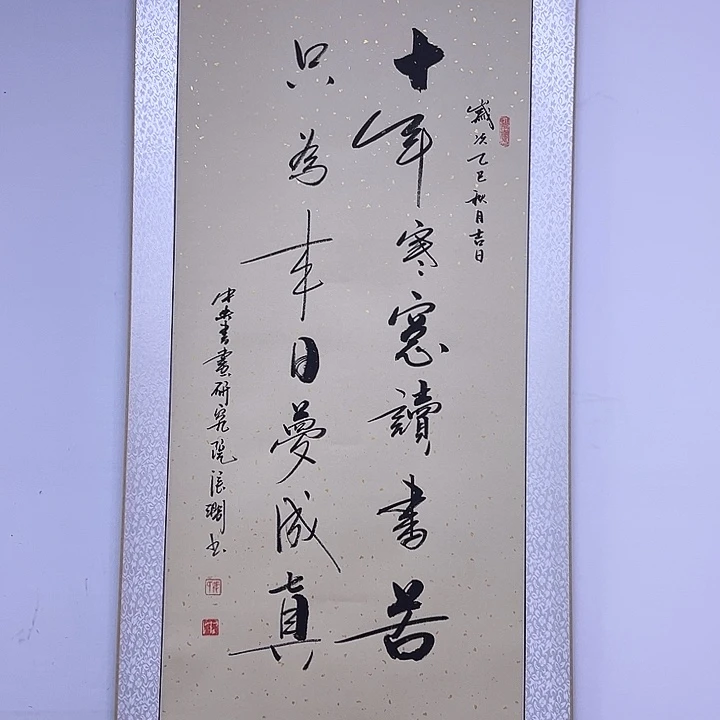 歲次乙巳秋月吉日
十年寒窓讀書苦
只為来日夢成真
中央書畫研究院張书